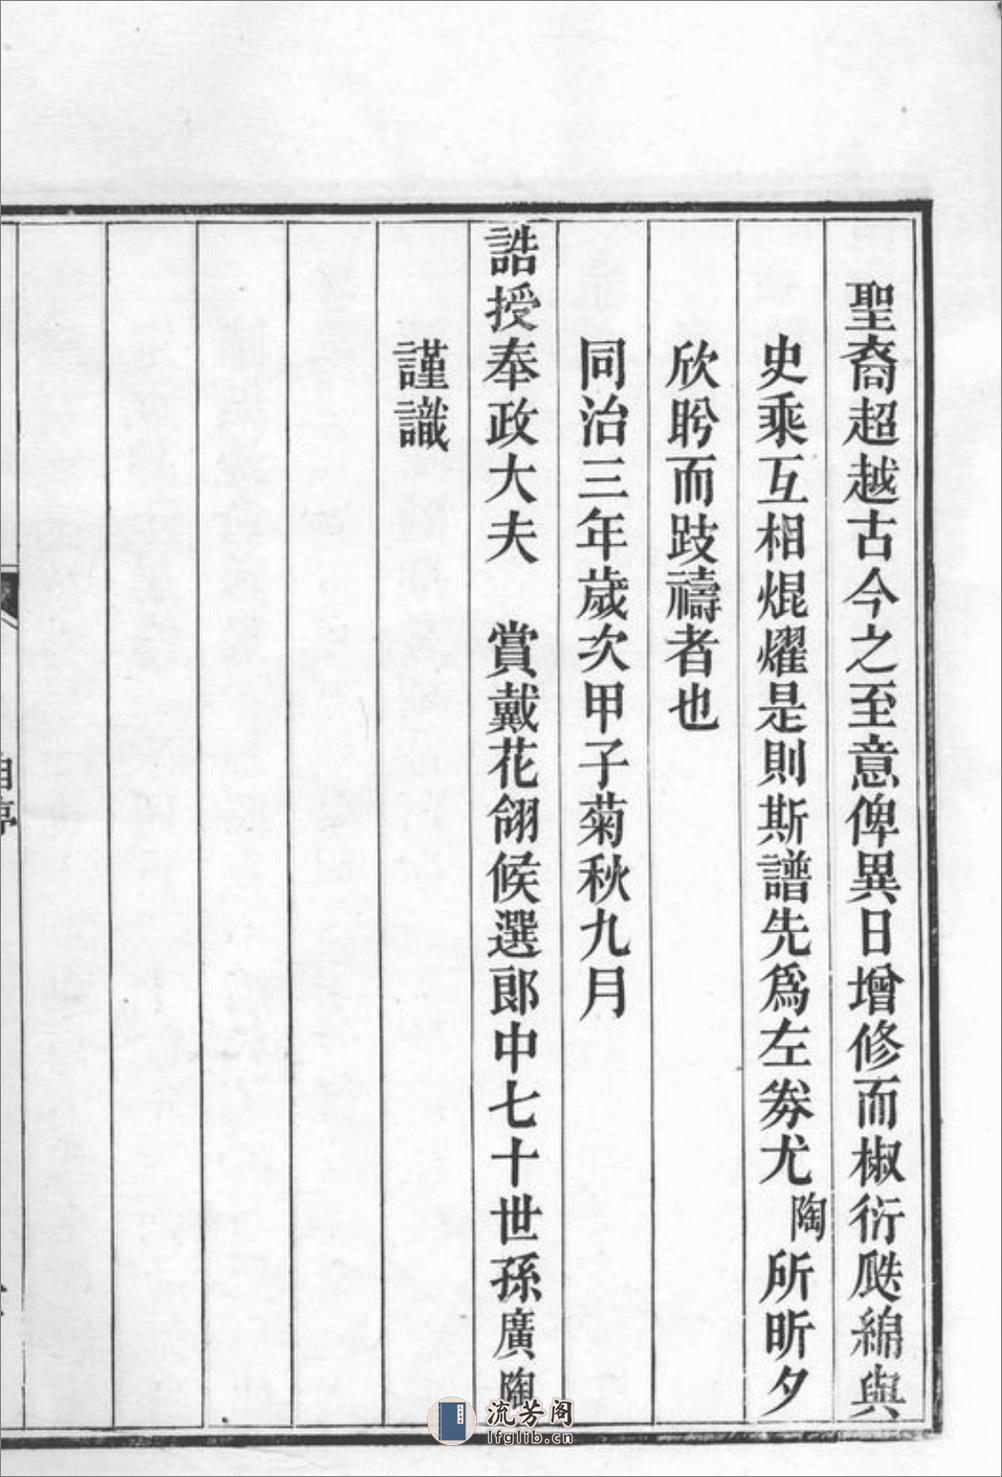 聖裔超越古今之至意俾異日增修而椒衍瓞綿與
史乘互相焜燿是則斯譜先爲左券尤陶所昕夕
欣盻而跂禱者也
同治三年歲次甲子菊秋九月
誥授奉政大夫　賞戴花翎候選郎中七十世孫廣陶
謹識
流芳阁
lfglib.cn